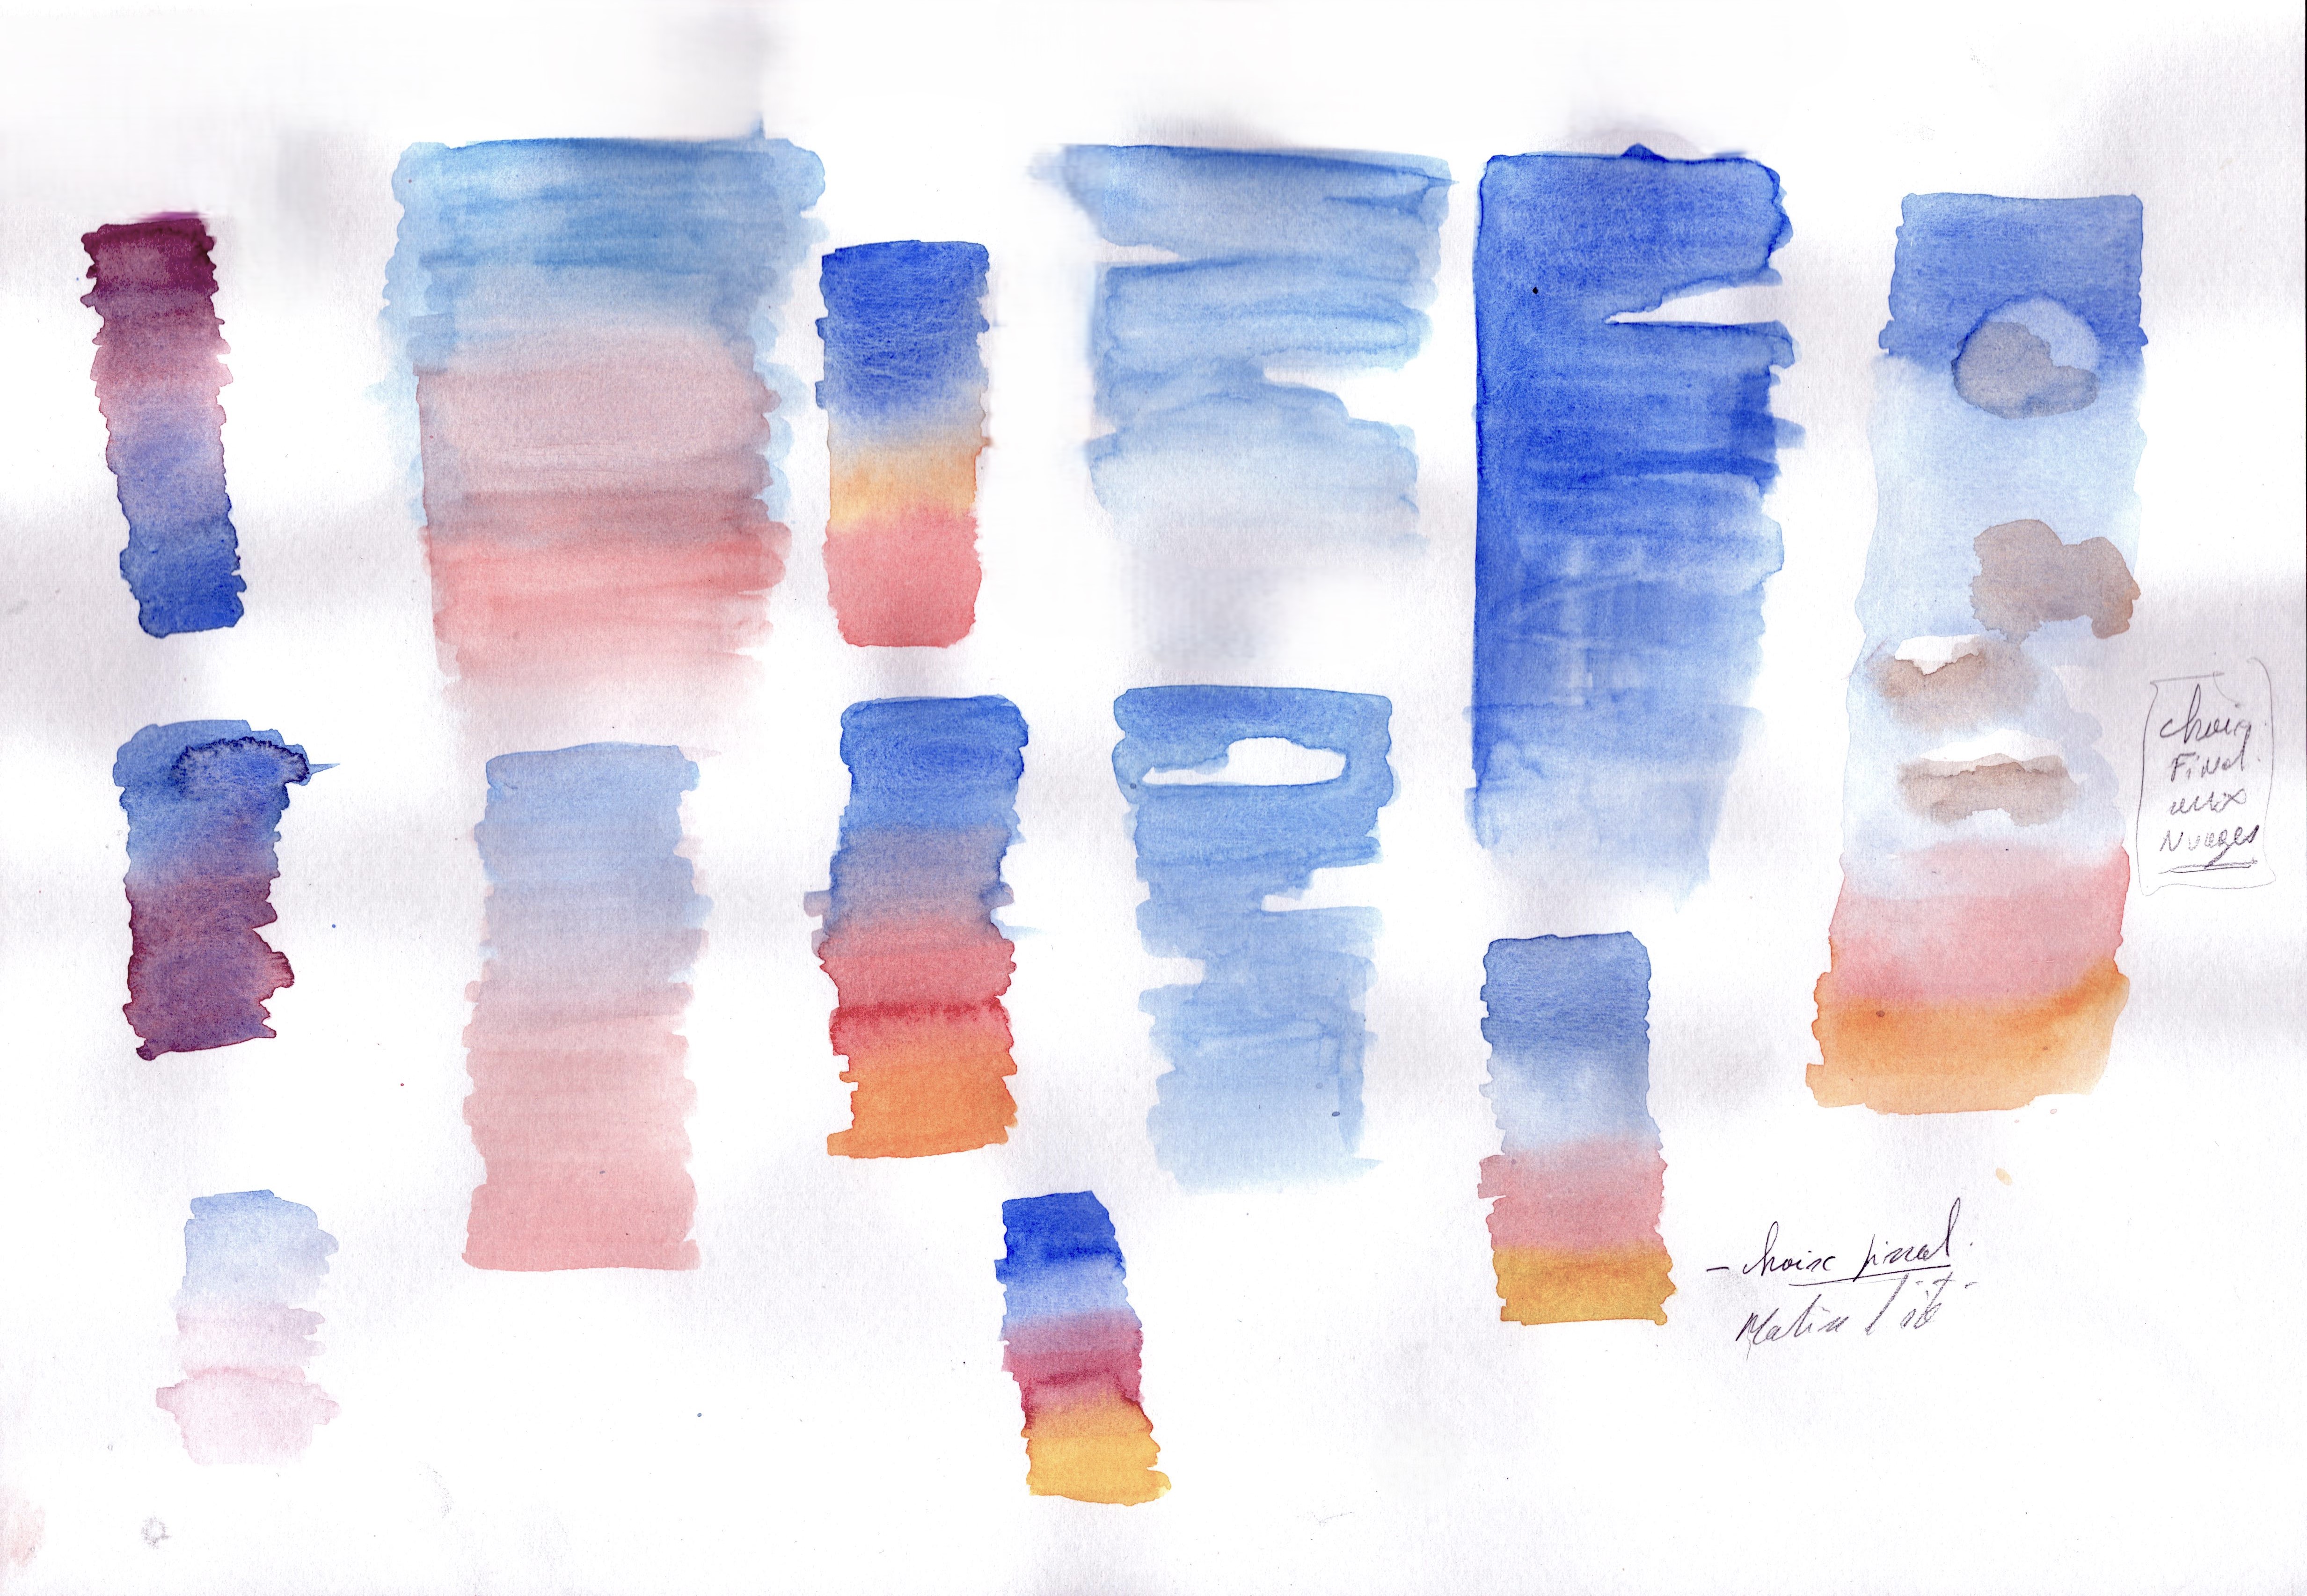 choix
Final.
mix
Nuages
– choix final.
Matin Tôt -